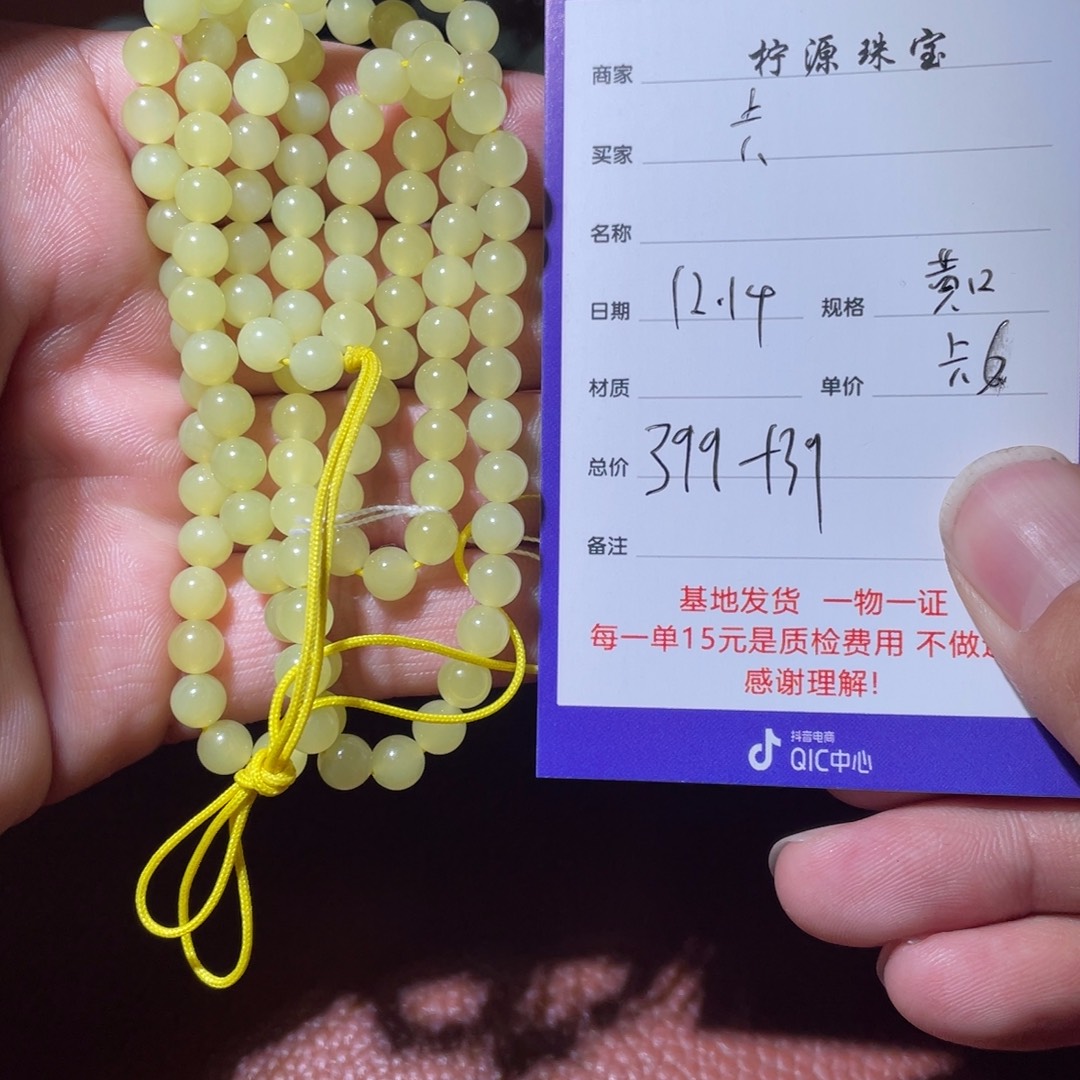 商家 柠源珠宝
买家
名称
日期 12.14 规格 黄口
材质 单价
总价 399+39
备注
基地发货 一物一证
每一单15元是质检费用 不做
感谢理解!
抖音电商
QIC中心